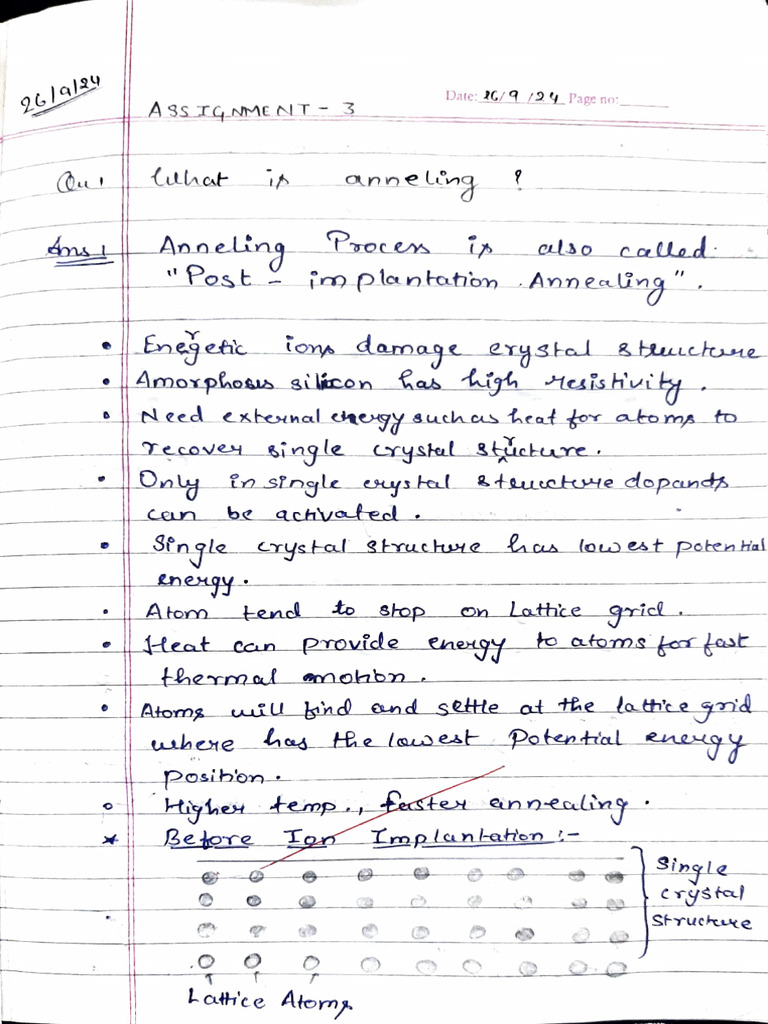 26/9/24
Date: 26/9/24 Page no:
ASSIGNMENT - 3
Qu 1 What is anneling ?
Ans 1 Anneling Process is also called
"Post - implantation Annealing".
• Energetic ions damage crystal structure
• Amorphosis silicon has high resistivity.
• Need external energy such as heat for atoms to
recover single crystal structure.
• Only in single crystal structure dopands
can be activated.
• Single crystal structure has lowest potential
energy.
• Atom tend to stop on Lattice grid.
• Heat can provide energy to atoms for fast
thermal motion.
• Atoms will find and settle at the lattice grid
where has the lowest Potential energy
Position.
• Higher temp., faster annealing.
* Before Ion Implantation :-
Single
crystal
structure
Lattice Atoms